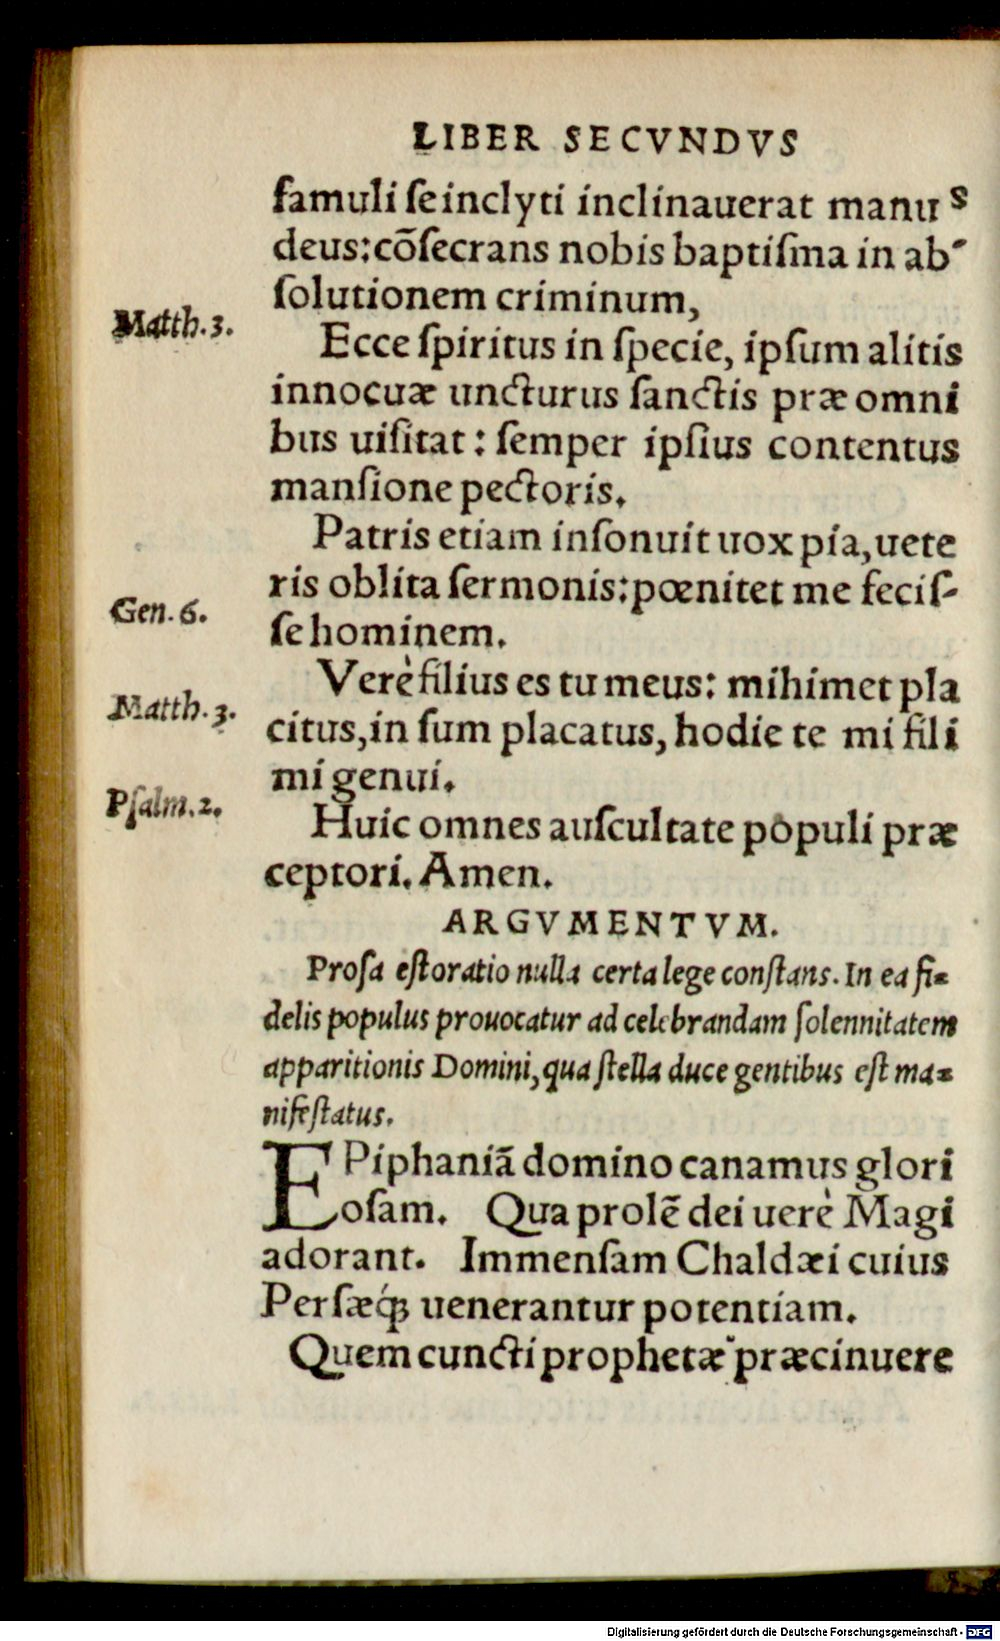 LIBER SECVNDVS
famuli ſe inclyti inclinauerat manus
deus: cõſecrans nobis baptiſma in ab-
ſolutionem criminum,
Matth. 3.
Ecce ſpiritus in ſpecie, ipſum alitis
innocuæ uncturus ſanctis præ omni
bus uiſitat: ſemper ipſius contentus
manſione pectoris.
Patris etiam inſonuit uox pia, uete
ris oblita ſermonis: pœnitet me feciſ-
Gen. 6.
ſe hominem.
Verè filius es tu meus: mihimet pla
Matth. 3.
citus, in ſum placatus, hodie te mi fili
mi genui.
Pſalm. 2.
Huic omnes auſcultate populi præ
ceptori. Amen.
ARGVMENTVM.
Proſa eſt oratio nulla certa lege conſtans. In ea fi-
delis populus prouocatur ad celebrandam ſolennitatem
apparitionis Domini, qua ſtella duce gentibus eſt ma-
nifeſtatus.
EPiphaniã domino canamus glori
oſam. Qua prolẽ dei uerè Magi
adorant. Immenſam Chaldæi cuius
Perſæq́ꝫ uenerantur potentiam.
Quem cuncti prophetæ præcinuere
Digitalisierung gefördert durch die Deutsche Forschungsgemeinschaft - DFG